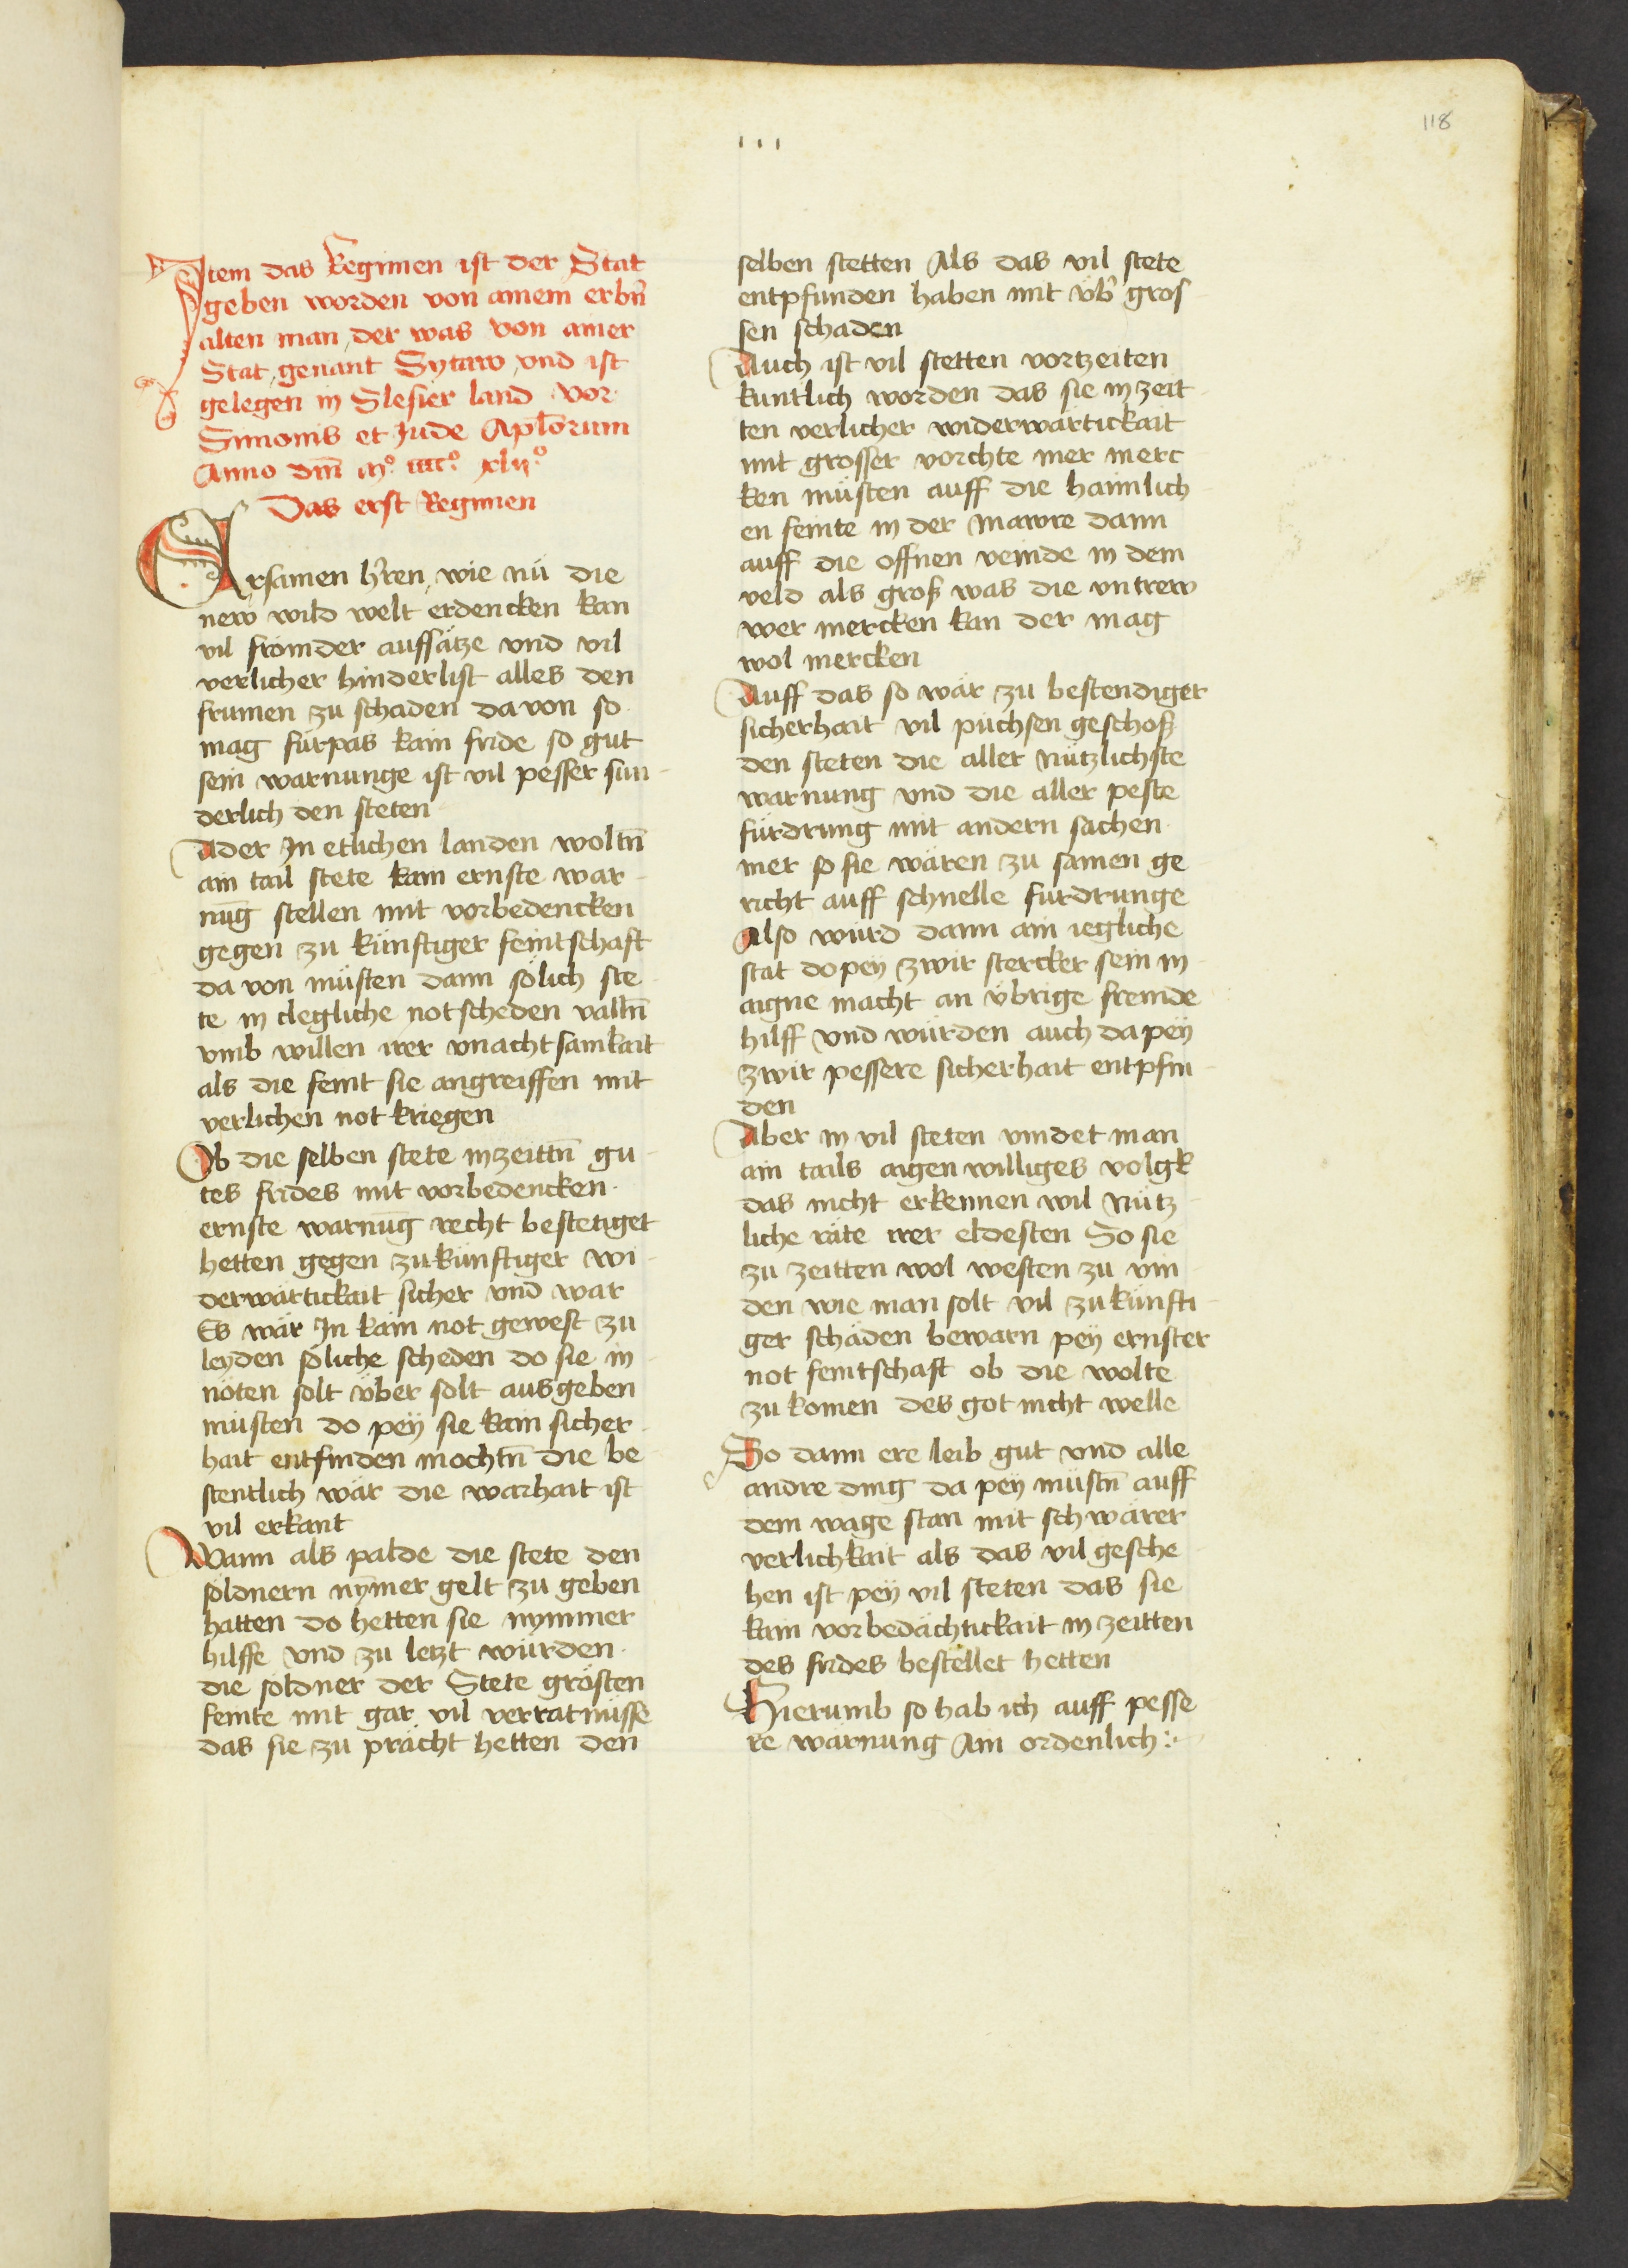 118
ııı
Item das Regimen ist der Stat
geben worden von ainem erbn̄
alten man, der was von ainer
Stat, genant Sytaw, vnd ist
gelegen in Slesier land vor
Simonis et Jude Apl̄orum
Anno dm̄ mͦ. iiiicͦ. xlijͦ
Das erst Regimen
Ersamen h̄ren, wie nü die
new wild welt erdencken kan
vil frömder auffsätze vnd vil
verlicher hinderlist alles den
frumen zu schaden da von so
mag fürpas kain fride so gut
sein warnunge ist vil pesser sun-
derlich den steten
Ader In etlichen landen woltn̄
ain tail stete kain ernste war-
nūg stellen mit vorbedencken
gegen zu künftiger feintschaft
da von müsten dann sölich ste
te in clegliche notscheden valln̄
vmb willen irer vnachtsamkait
als die feint sie angreiffen mit
verlichen not kriegen
Ob die selben stete in zeittn̄ gu-
tes frides mit vorbedencken
ernste warnūg recht bestetiget
hetten gegen zukünftiger wi-
derwärtickait sicher vnd war
Es wär In kain not gewest zu
leyden söliche scheden do sie in
nöten solt über solt ausgeben
müsten do peÿ sie kain sicher-
hait entfinden mochtn̄ die be
stentlich wär die warhait ist
vil erkant
Wann als palde die stete den
soldnern nȳmer gelt zu geben
hatten do hetten sie nymmer
hilffe vnd zu letzt würden
die söldner der Stete grösten
feinte mit gar vil verratnüsse
das sie zu prächt hetten den
selben stetten Als das vil stete
entpfunden haben mit üb̄ gros-
sen schaden
Auch ist vil stetten vortzeiten
kuntlich worden das sie in zeit-
ten verlicher widerwärtickait
mit grosser vorchte mer merc
ken müsten auff die haimlich-
en feinte in der mawre dann
auff die offnen veinde in dem
veld als groß was die vntrew
wer mercken kan der mag
wol mercken
Auff das so wär zu bestendiger
sicherhait vil püchsen geschoß
den steten die aller nützlichste
warnung vnd die aller peste
fürdrung mit andern sachen
mer so sie wären zu samen ge
richt auff schnelle fürdrunge
Also würd dann ain iegliche
stat do peÿ zwir stercker sein in
aigne macht an übrige fremde
hilff vnd würden auch da peÿ
zwir pessere sicherhait entpfin
den
Aber in vil steten vindet man
ain tails aigen williges volgk
das nicht erkennen wil nütz-
liche räte irer eldesten So sie
zu zeitten wol westen zu vin-
den wie man solt vil zukünfti-
ger schäden bewarn peÿ ernster
not feintschaft ob die wolte
zu komen des got nicht welle
So dann ere leib gut vnd alle
andre ding da peÿ müstn̄ auff
dem wage stan mit schwärer
verlichkait als das vil gesche
hen ist peÿ vil steten das sie
kain vorbedächtickait in zeitten
des frides bestellet hetten
Hierumb so hab ich auff pesse
re warnung Ain ordenlich :-